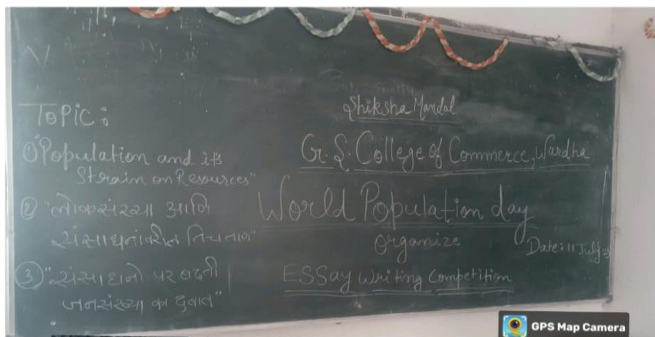 Topic:
① "Population and its
Strain on Resources"
② "लोकसंख्या आणि
संसाधनांवरील तिचा ताण"
③ "संसाधनों पर बढ़ती
जनसंख्या का दबाव"
Shiksha Mandal
G. S. College of Commerce, Wardha
World Population day
Organize
Date: 11 July
ESSay Writing Competition
GPS Map Camera